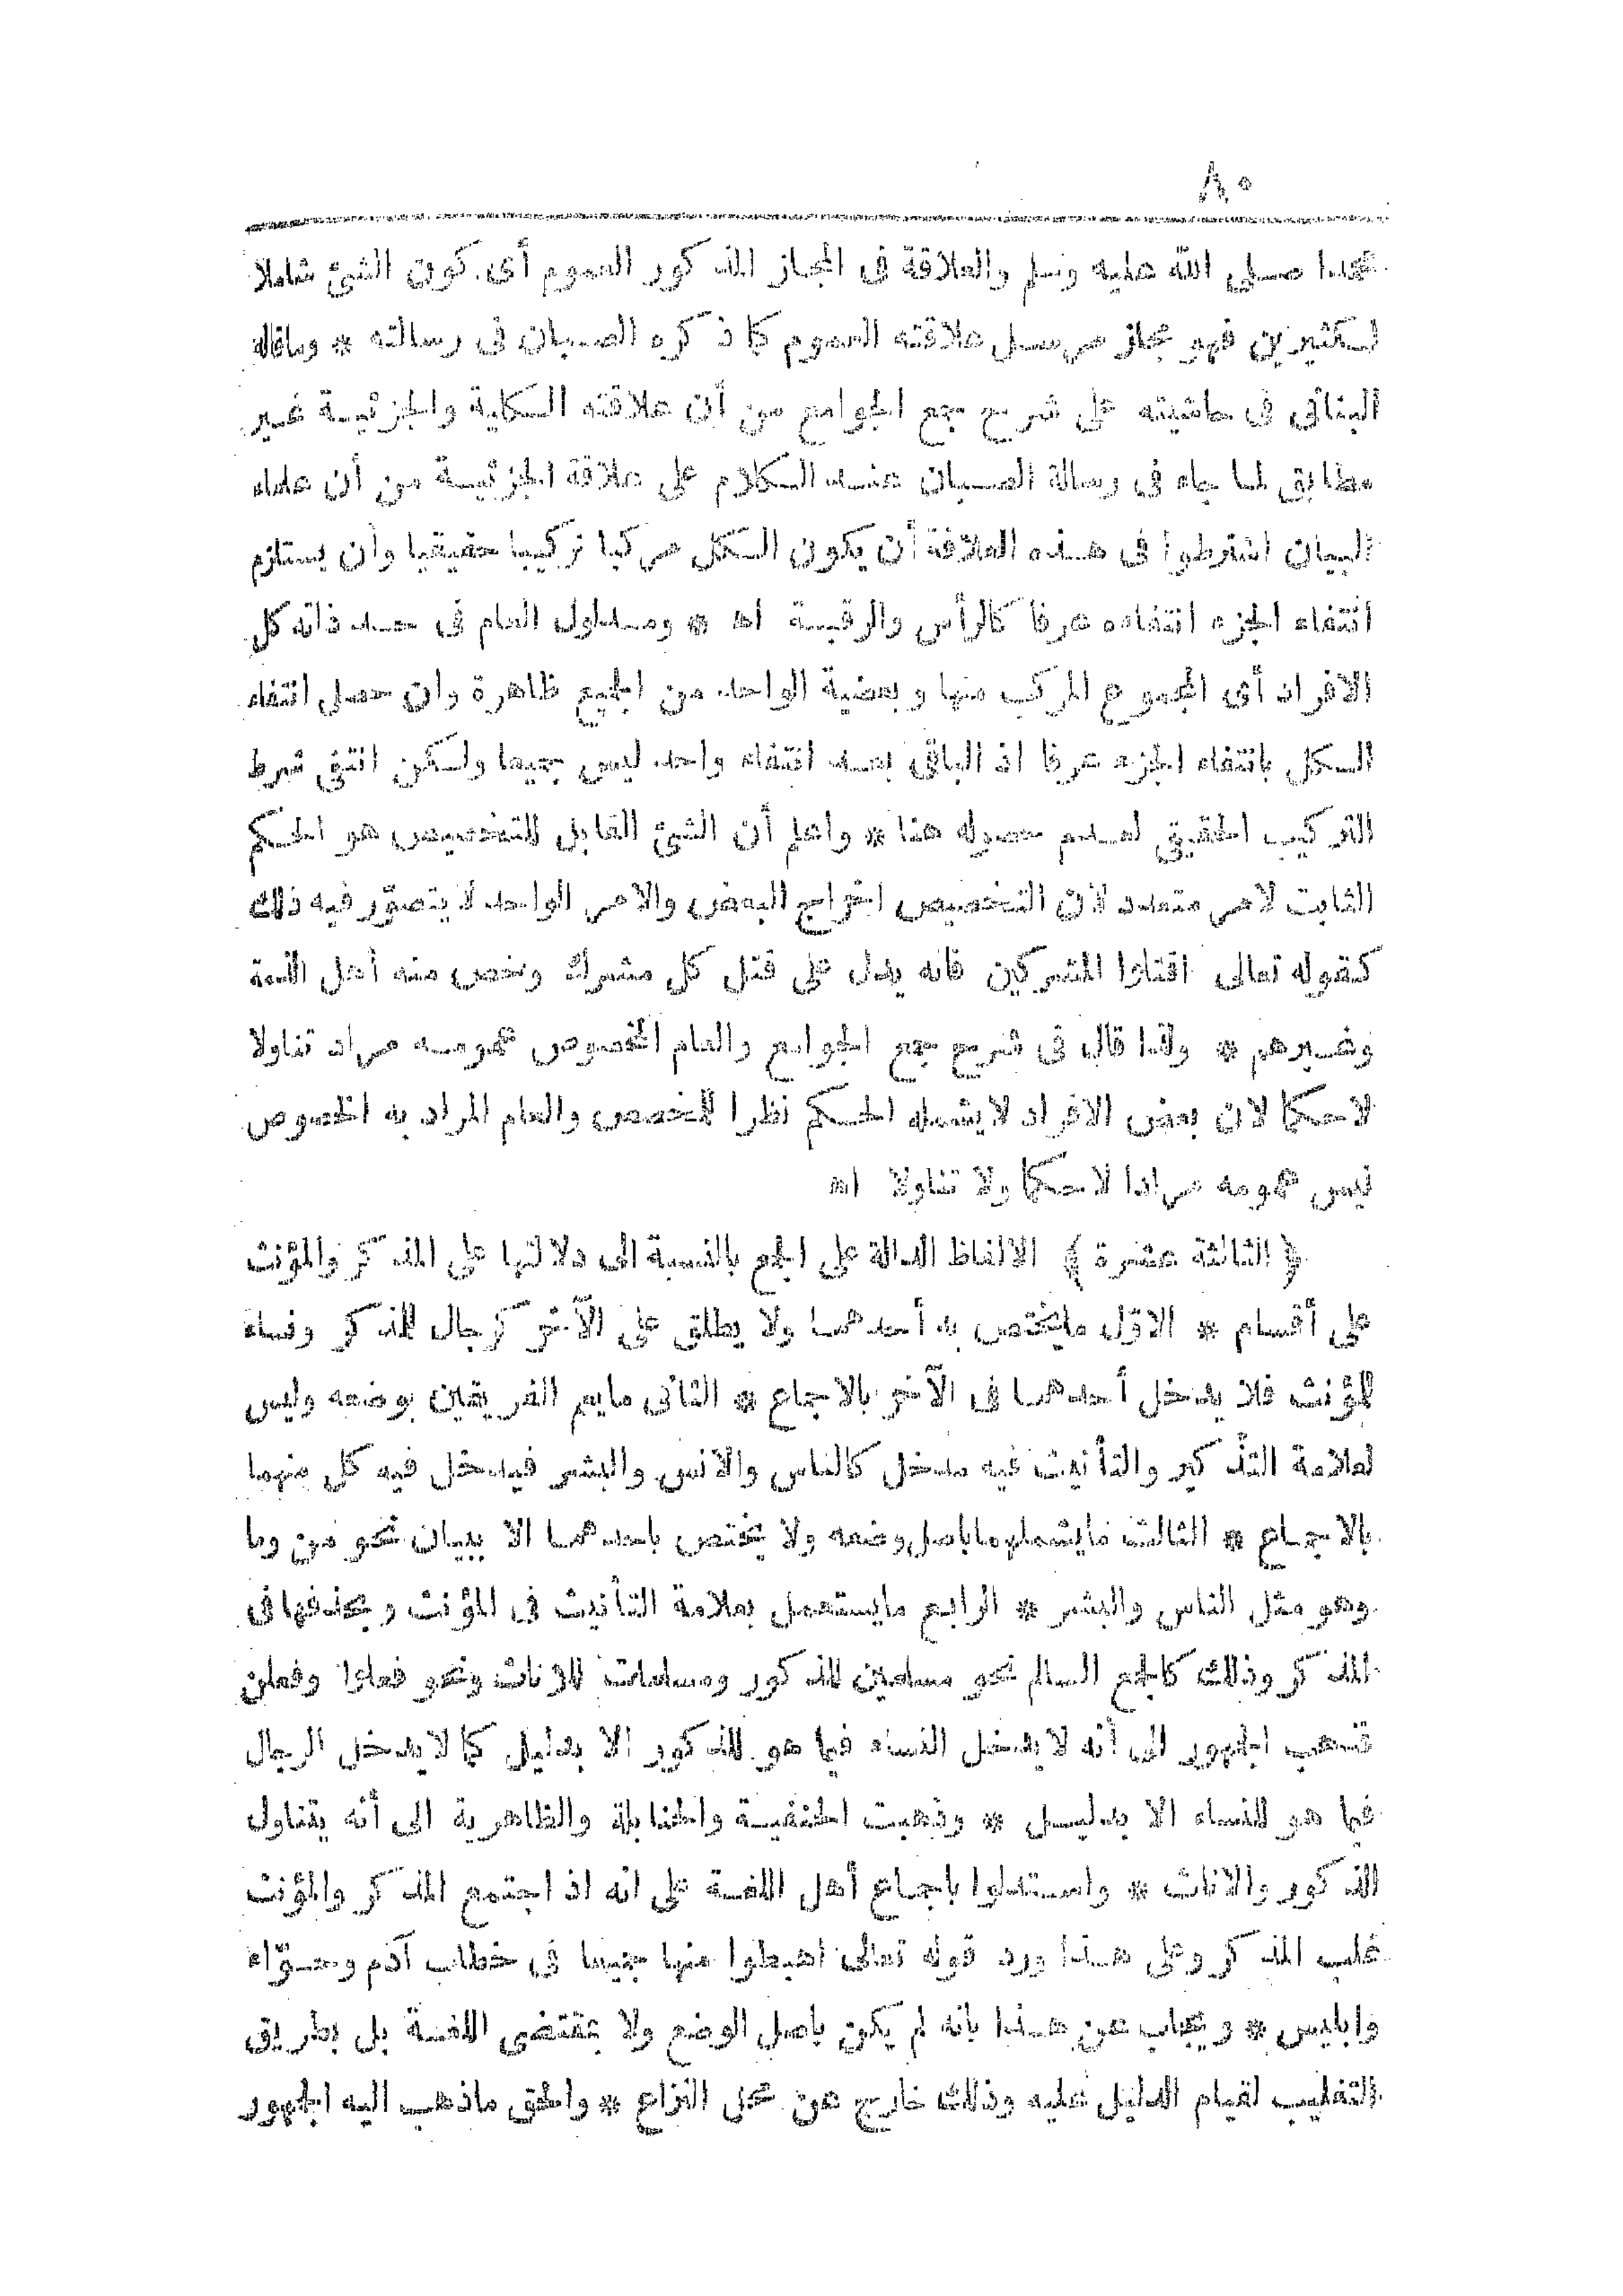 ٨٠
محمدا صلى الله عليه وسلم والعلاقة فى المجاز المذكور العموم أى كون الشئ شاملا
لكثيرين فهو مجاز مرسل علاقته العموم كما ذكره الصبان فى رسالته * وماقاله
البنانى فى حاشيته على شرح جمع الجوامع من أن علاقته الكلية والجزئية غير
مطابق لما جاء فى رسالة الصبان عند الكلام على علاقة الجزئية من أن علماء
البيان اشترطوا فى هذه العلاقة أن يكون الكل مركبا تركيبا حقيقيا وأن يستلزم
انتفاء الجزء انتفاءه عرفا كالرأس والرقبة اه * ومدلول العام فى حد ذاته كل
الافراد أى المجموع المركب منها وبعضية الواحد من الجميع ظاهرة وان حصل انتفاء
الكل بانتفاء الجزء عرفا اذ الباقى بعد انتفاء واحد ليس جميعا ولكن انتفى شرط
التركيب الحقيقى لعدم حصوله هنا * واعلم أن الشئ القابل للتخصيص هو الحكم
الثابت لامر متعدد لان التخصيص اخراج البعض والامر الواحد لا يتصوّر فيه ذلك
كقوله تعالى اقتلوا المشركين فانه يدل على قتل كل مشرك وخص منه أهل الذمة
وغيرهم * ولذا قال فى شرح جمع الجوامع والعام المخصوص عمومه مراد تناولا
لاحكما لان بعض الافراد لايشمله الحكم نظرا للمخصص والعام المراد به الخصوص
ليس عمومه مرادا لاحكما ولا تناولا اه
﴿ الثالثة عشرة ﴾ الالفاظ الدالة على الجمع بالنسبة الى دلالتها على المذكر والمؤنث
على أقسام * الاوّل مايختص به أحدهما ولا يطلق على الآخر كرجال للمذكر ونساء
للمؤنث فلا يدخل أحدهما فى الآخر بالاجماع * الثانى مايعم الفريقين بوضعه وليس
لعلامة التذكير والتأنيث فيه مدخل كالناس والانس والبشر فيدخل فيه كل منهما
بالاجماع * الثالث مايشملهما باصل وضعه ولا يختص باحدهما الا ببيان نحو من وما
وهو مثل الناس والبشر * الرابع مايستعمل بعلامة التأنيث فى المؤنث وبحذفها فى
المذكر وذلك كالجمع السالم نحو مسلمين للذكور ومسلمات للاناث ونحو فعلوا وفعلن
فذهب الجمهور الى أنه لا يدخل النساء فيما هو للذكور الا بدليل كما لا يدخل الرجال
فيما هو للنساء الا بدليل * وذهبت الحنفية والحنابلة والظاهرية الى أنه يتناول
الذكور والاناث * واستدلوا باجماع أهل اللغة على انه اذ اجتمع المذكر والمؤنث
غلب المذكر وعلى هذا ورد قوله تعالى اهبطوا منها جميعا فى خطاب آدم وحوّاء
وابليس * ويجاب عن هذا بانه لم يكن باصل الوضع ولا بمقتضى اللغة بل بطريق
التغليب لقيام الدليل عليه وذلك خارج عن محل النزاع * والحق ماذهب اليه الجمهور